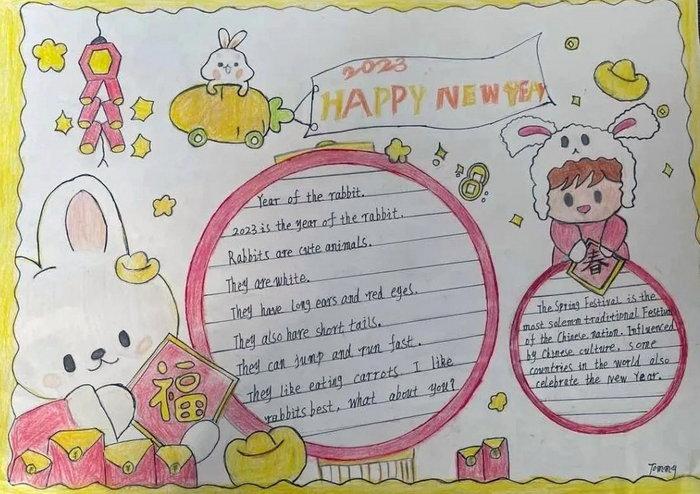 2023
HAPPY NEW YEAR
Year of the rabbit.
2023 is the year of the rabbit.
Rabbits are cute animals.
They are white.
They have long ears and red eyes.
They also have short tails.
They can jump and run fast.
They like eating carrots I like
rabbits best, what about you?
福
春
The Spring Festival is the
most solemn traditional Festival
of the Chinese nation. Influenced
by Chinese culture, some
countries in the world also
celebrate the New Year.
Tommy